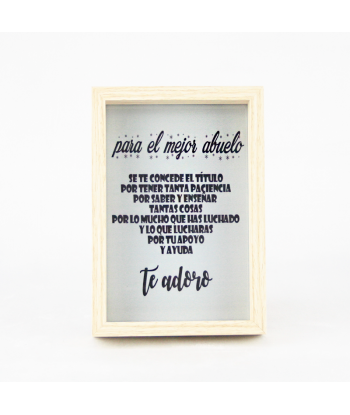 para el mejor abuelo
SE TE CONCEDE EL TÍTULO
POR TENER TANTA PACIENCIA
POR SABER Y ENSEÑAR
TANTAS COSAS
POR LO MUCHO QUE HAS LUCHADO
Y LO QUE LUCHARAS
POR TU APOYO
Y AYUDA
Te adoro